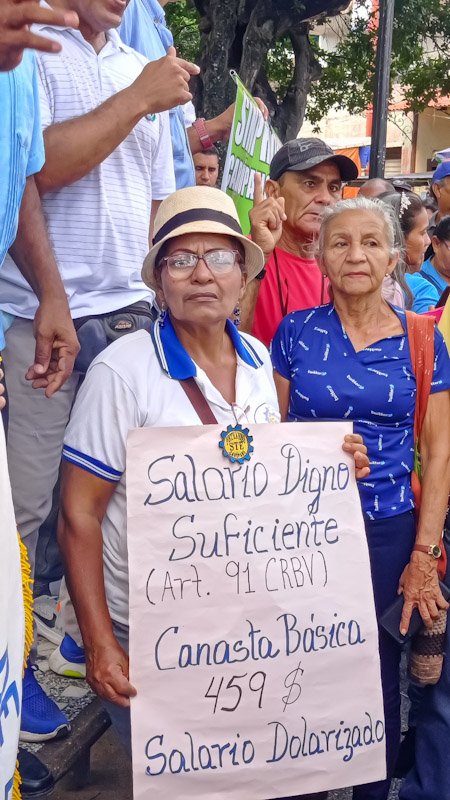 Salario Digno
Suficiente
(Art. 91 CRBV)
Canasta Básica
459 $
Salario Dolarizado
STE
twitter